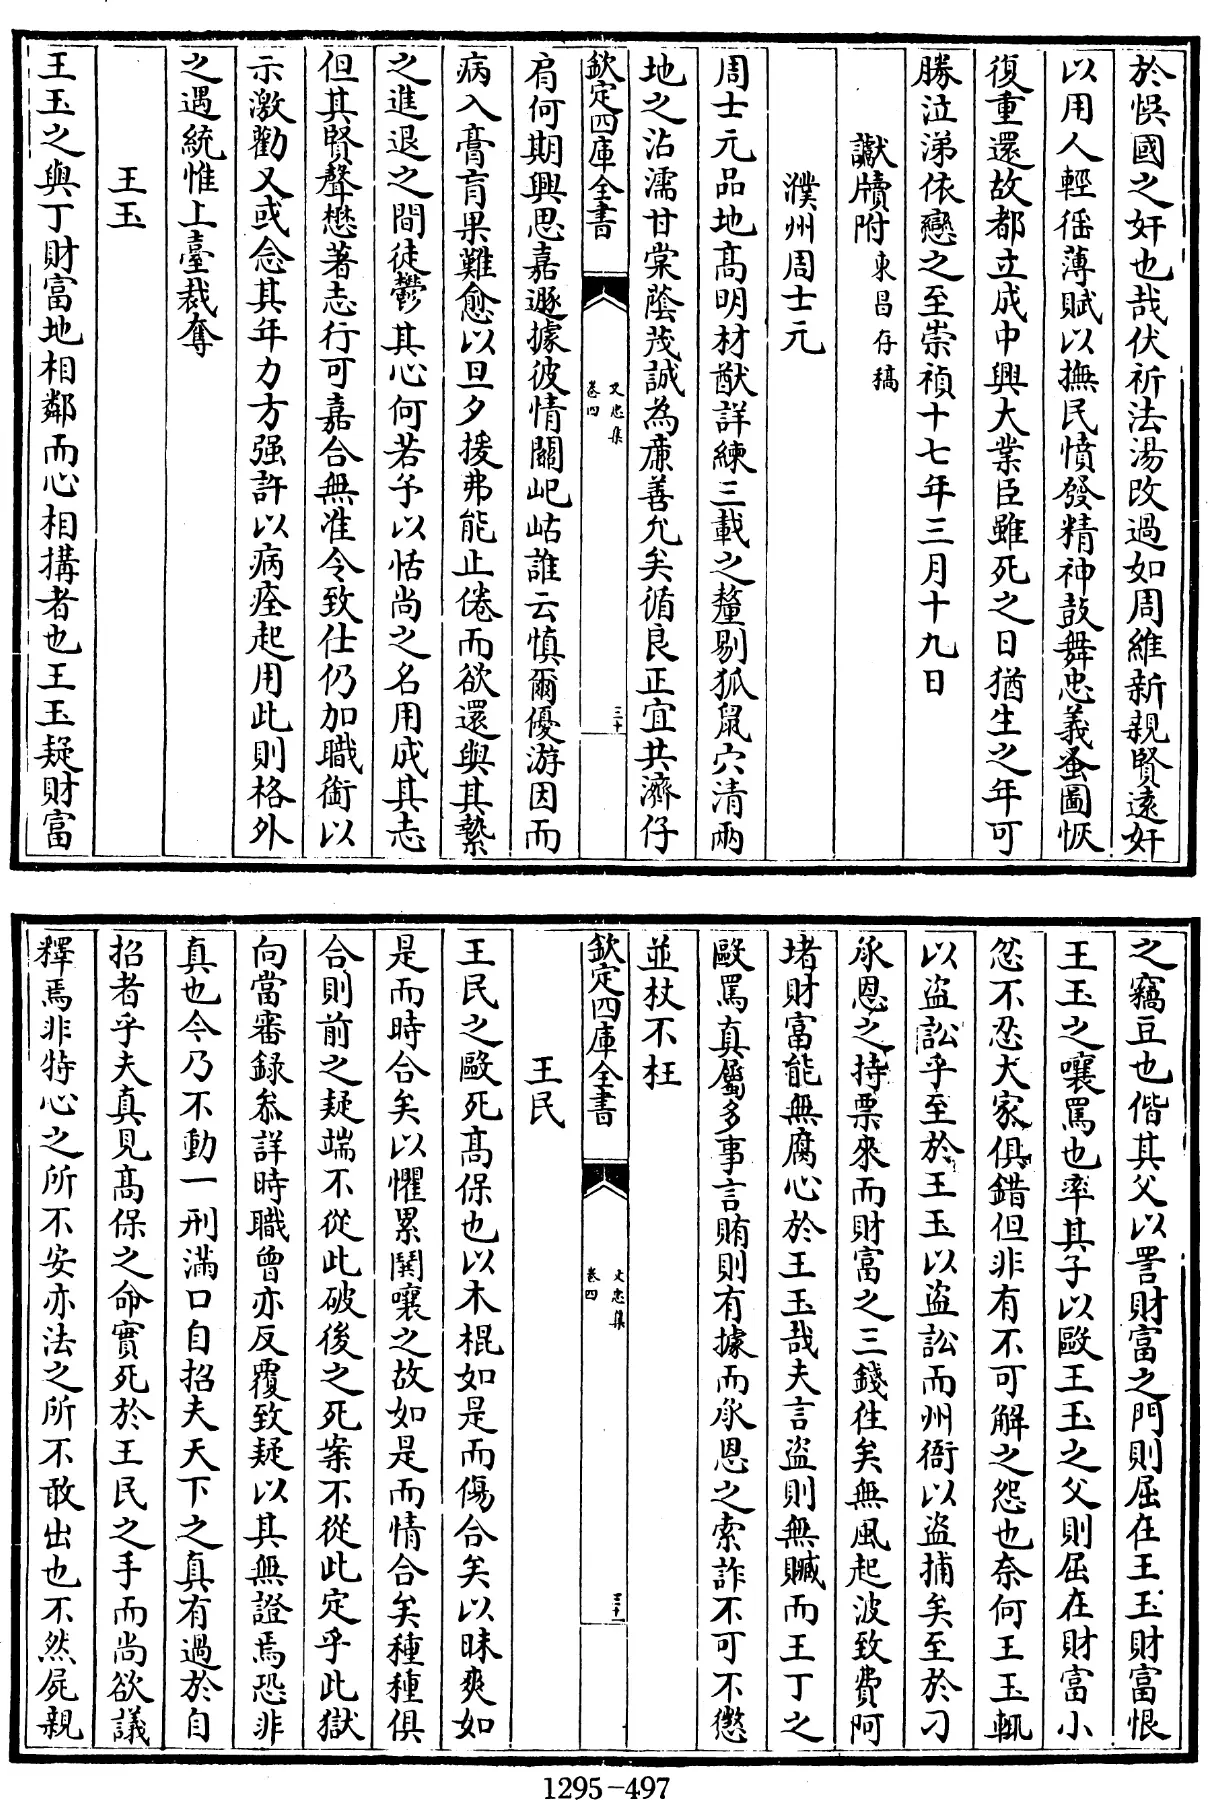 於悞國之奸也哉伏祈法湯改過如周維新親賢遠奸
以用人輕徭薄賦以撫民憤發精神鼓舞忠義蚤圖恢
復重還故都立成中興大業臣雖死之日猶生之年可
勝泣涕依戀之至崇禎十七年三月十九日
讞牘附東昌存稿
濮州周士元
周士元品地高明材猷詳練三載之釐剔狐鼠穴清兩
地之沾濡甘棠蔭茂誠為亷善允矣循良正宜共濟仔
欽定四庫全書
文忠集
卷四
三十
肩何期興思嘉遯據彼情關屺岵誰云慎爾優游因而
病入膏肓果難愈以旦夕援弗能止倦而欲還與其縶
之進退之間徒鬱其心何若予以恬尚之名用成其志
但其賢聲懋著志行可嘉合無准令致仕仍加職銜以
示激勸又或念其年力方强許以病痊起用此則格外
之遇統惟上臺裁奪
王玉
王玉之與丁財富地相鄰而心相搆者也王玉疑財富
之竊豆也偕其父以詈財富之門則屈在王玉財富恨
王玉之嚷罵也率其子以毆王玉之父則屈在財富小
忿不忍大家俱錯但非有不可解之怨也奈何王玉輒
以盗訟乎至於王玉以盗訟而州衙以盗捕矣至於刁
承恩之持票來而財富之三錢徃矣無風起波致費阿
堵財富能無腐心於王玉哉夫言盗則無贓而王丁之
毆罵真屬多事言賄則有據而承恩之索詐不可不懲
並杖不枉
欽定四庫全書
文忠集
卷四
三十一
王民
王民之毆死高保也以木棍如是而傷合矣以昧爽如
是而時合矣以懼累鬨嚷之故如是而情合矣種種俱
合則前之疑端不從此破後之死案不從此定乎此獄
向當審録叅詳時職曾亦反覆致疑以其無證焉恐非
真也今乃不動一刑滿口自招夫天下之真有過於自
招者乎夫真見高保之命實死於王民之手而尚欲議
釋焉非特心之所不安亦法之所不敢出也不然屍親
1295-497